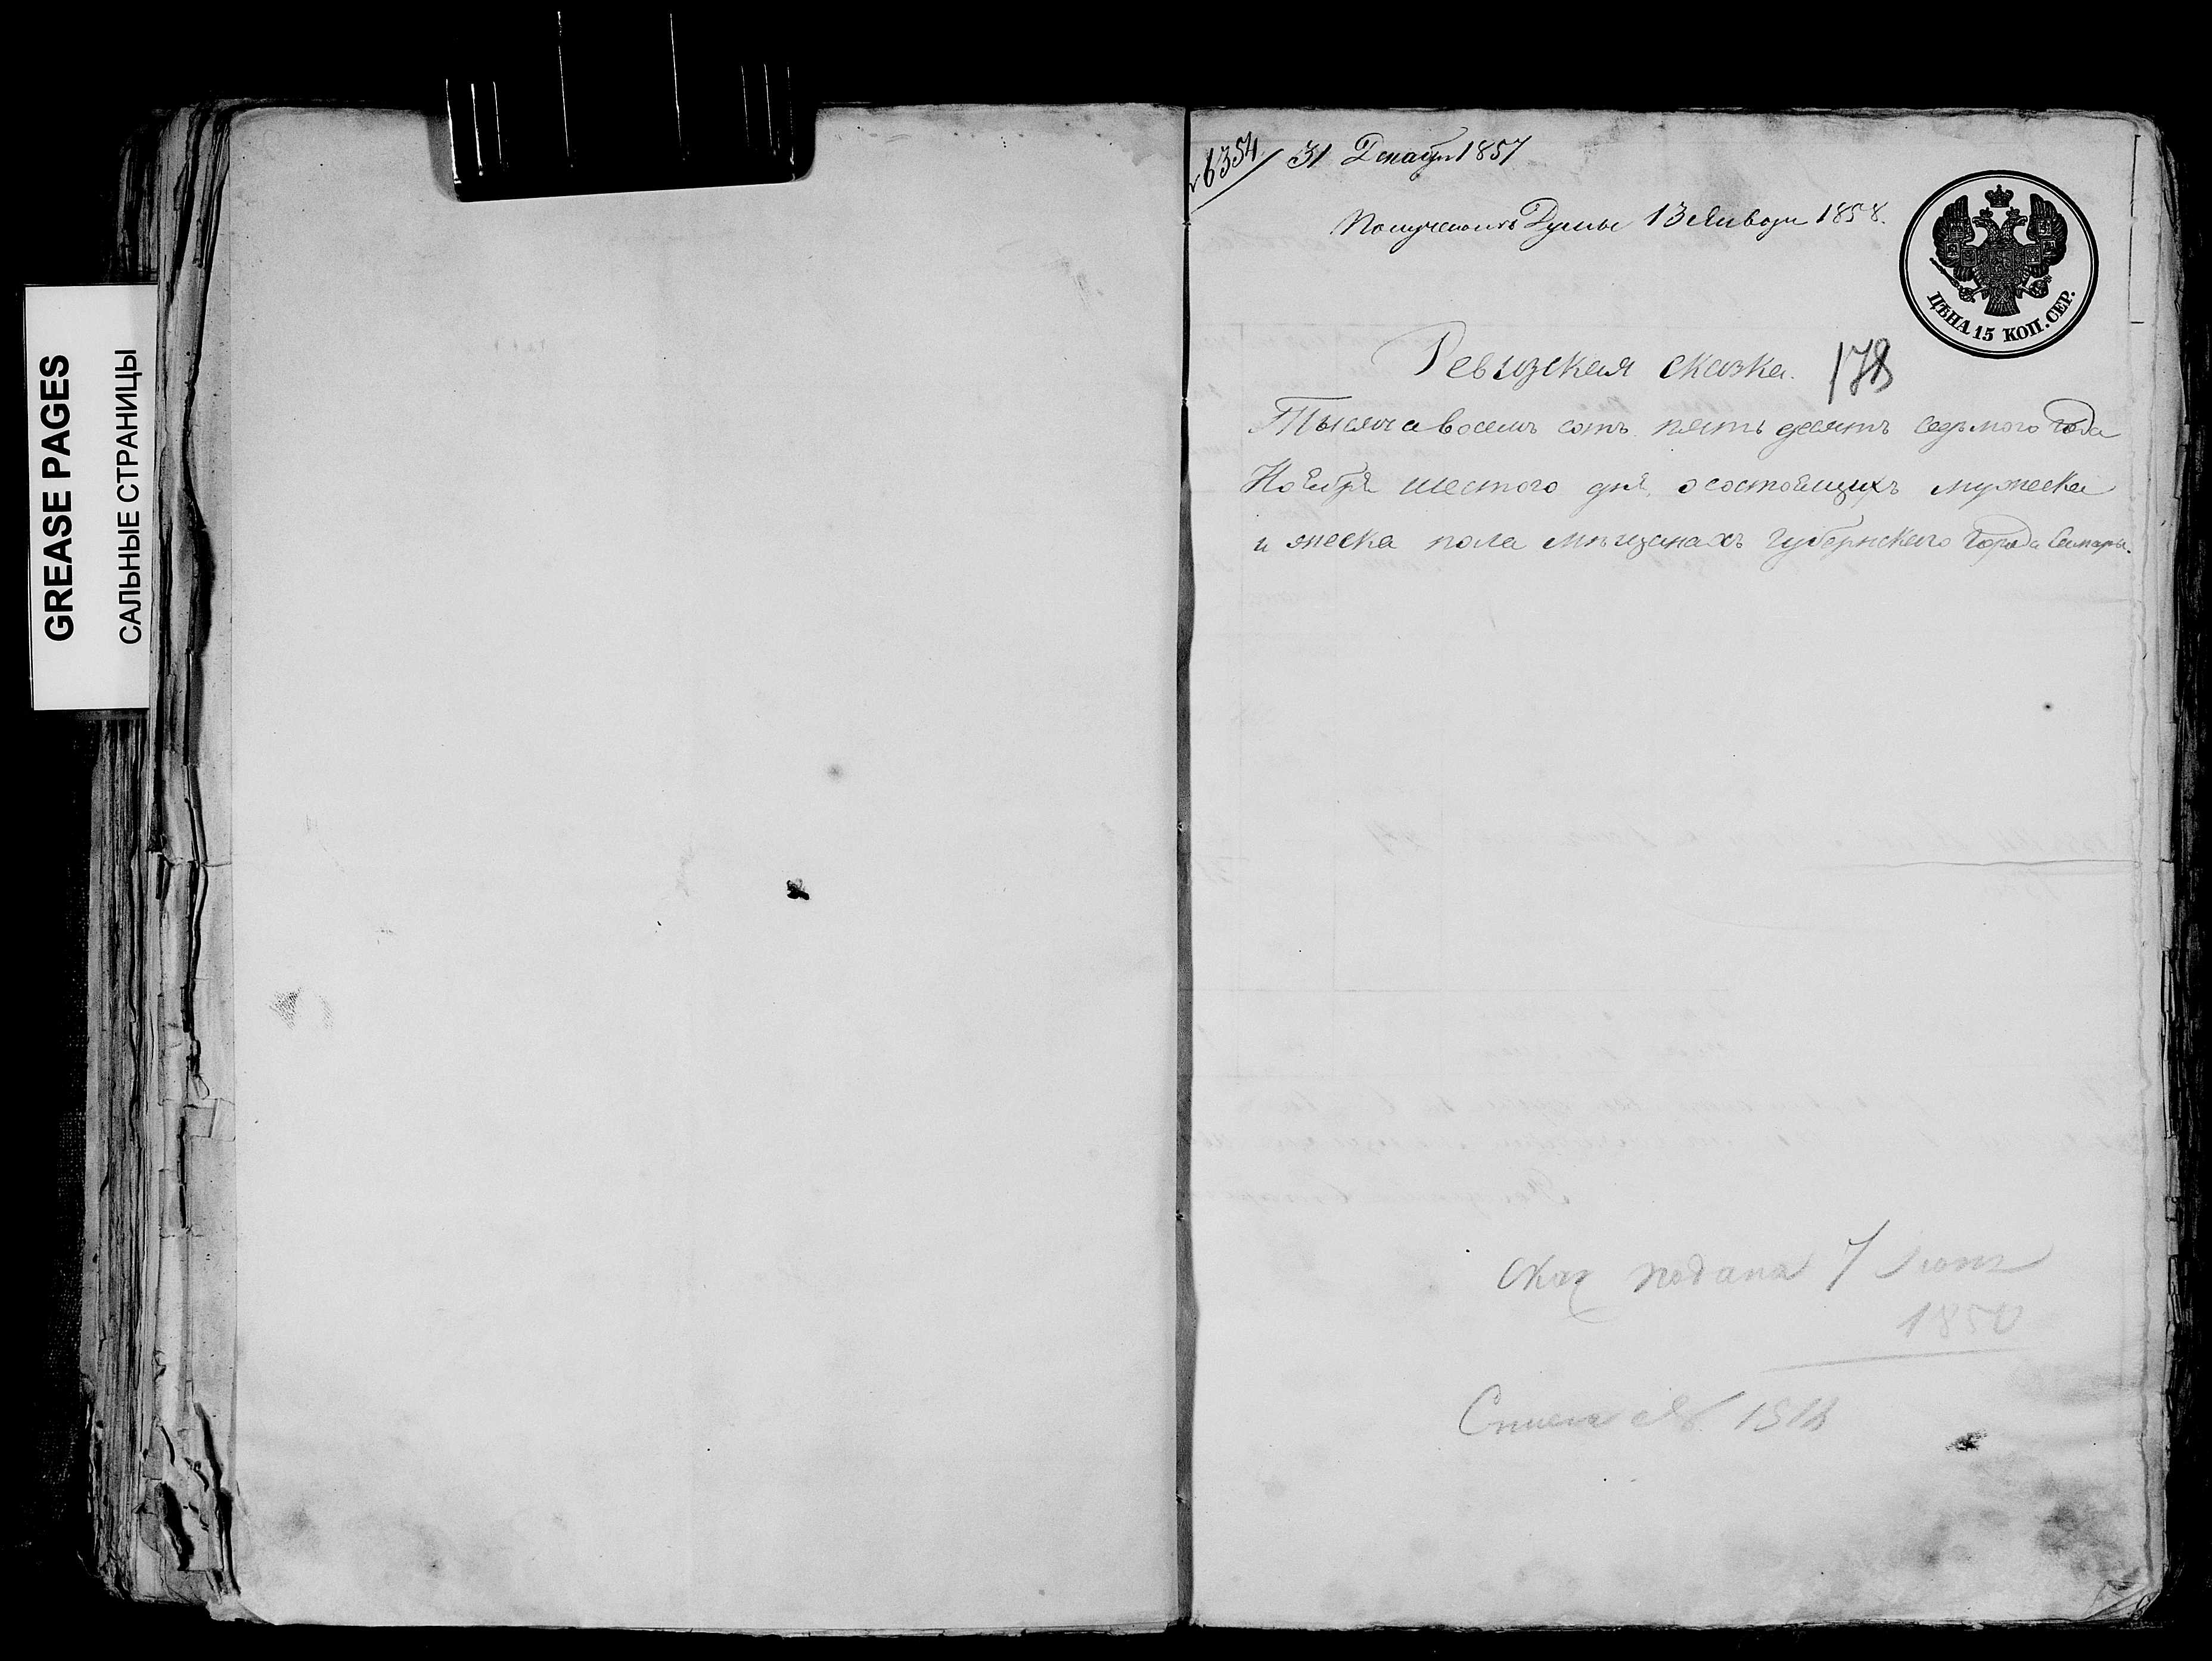 GREASE PAGES
САЛЬНЫЕ СТРАНИЦЫ
6354 31 Декабря 1857
Получена изъ Думы 13 Января 1858.
ЦѢНА 15 КОП. СЕР.
Ревизская сказка. 178
Тысяча восемь сотъ пять десятъ седьмого года
Ноября шестого дня, о состоящихъ мужеска
и женска пола мѣщанахъ Губернскаго Города Самары.
Сказ подана 7 Июня
1850